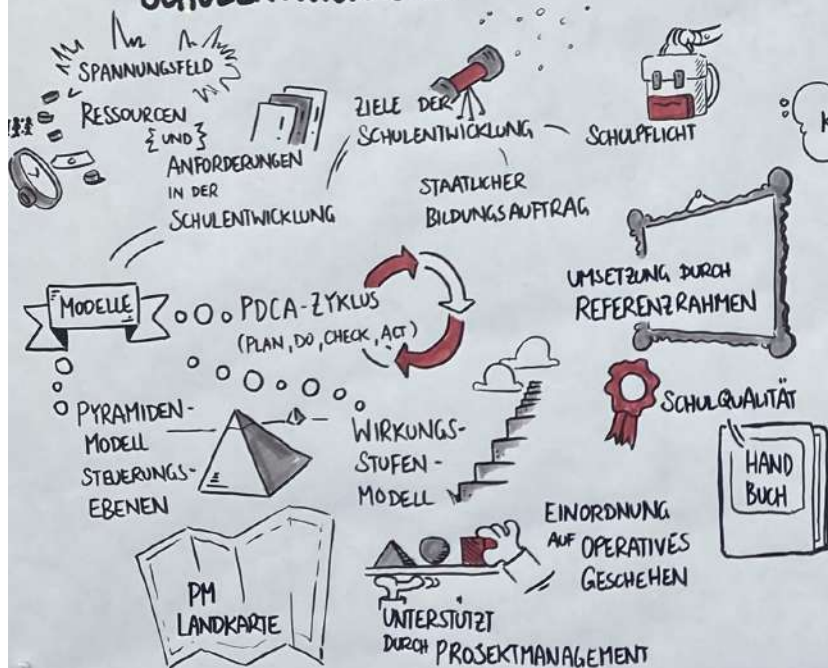 SPANNUNGSFELD
RESSOURCEN
{ UND }
ANFORDERUNGEN
IN DER
SCHULENTWICKLUNG
ZIELE DER
SCHULENTWICKLUNG
SCHULPFLICHT
STAATLICHER
BILDUNGSAUFTRAG
UMSETZUNG DURCH
REFERENZRAHMEN
MODELLE
PDCA-ZYKLUS
(PLAN, DO, CHECK, ACT)
PYRAMIDEN-
MODELL
STEUERUNGS-
EBENEN
WIRKUNGS-
STUFEN-
MODELL
SCHULQUALITÄT
HAND
BUCH
EINORDNUNG
AUF OPERATIVES
GESCHEHEN
PM
LANDKARTE
UNTERSTÜTZT
DURCH PROJEKTMANAGEMENT